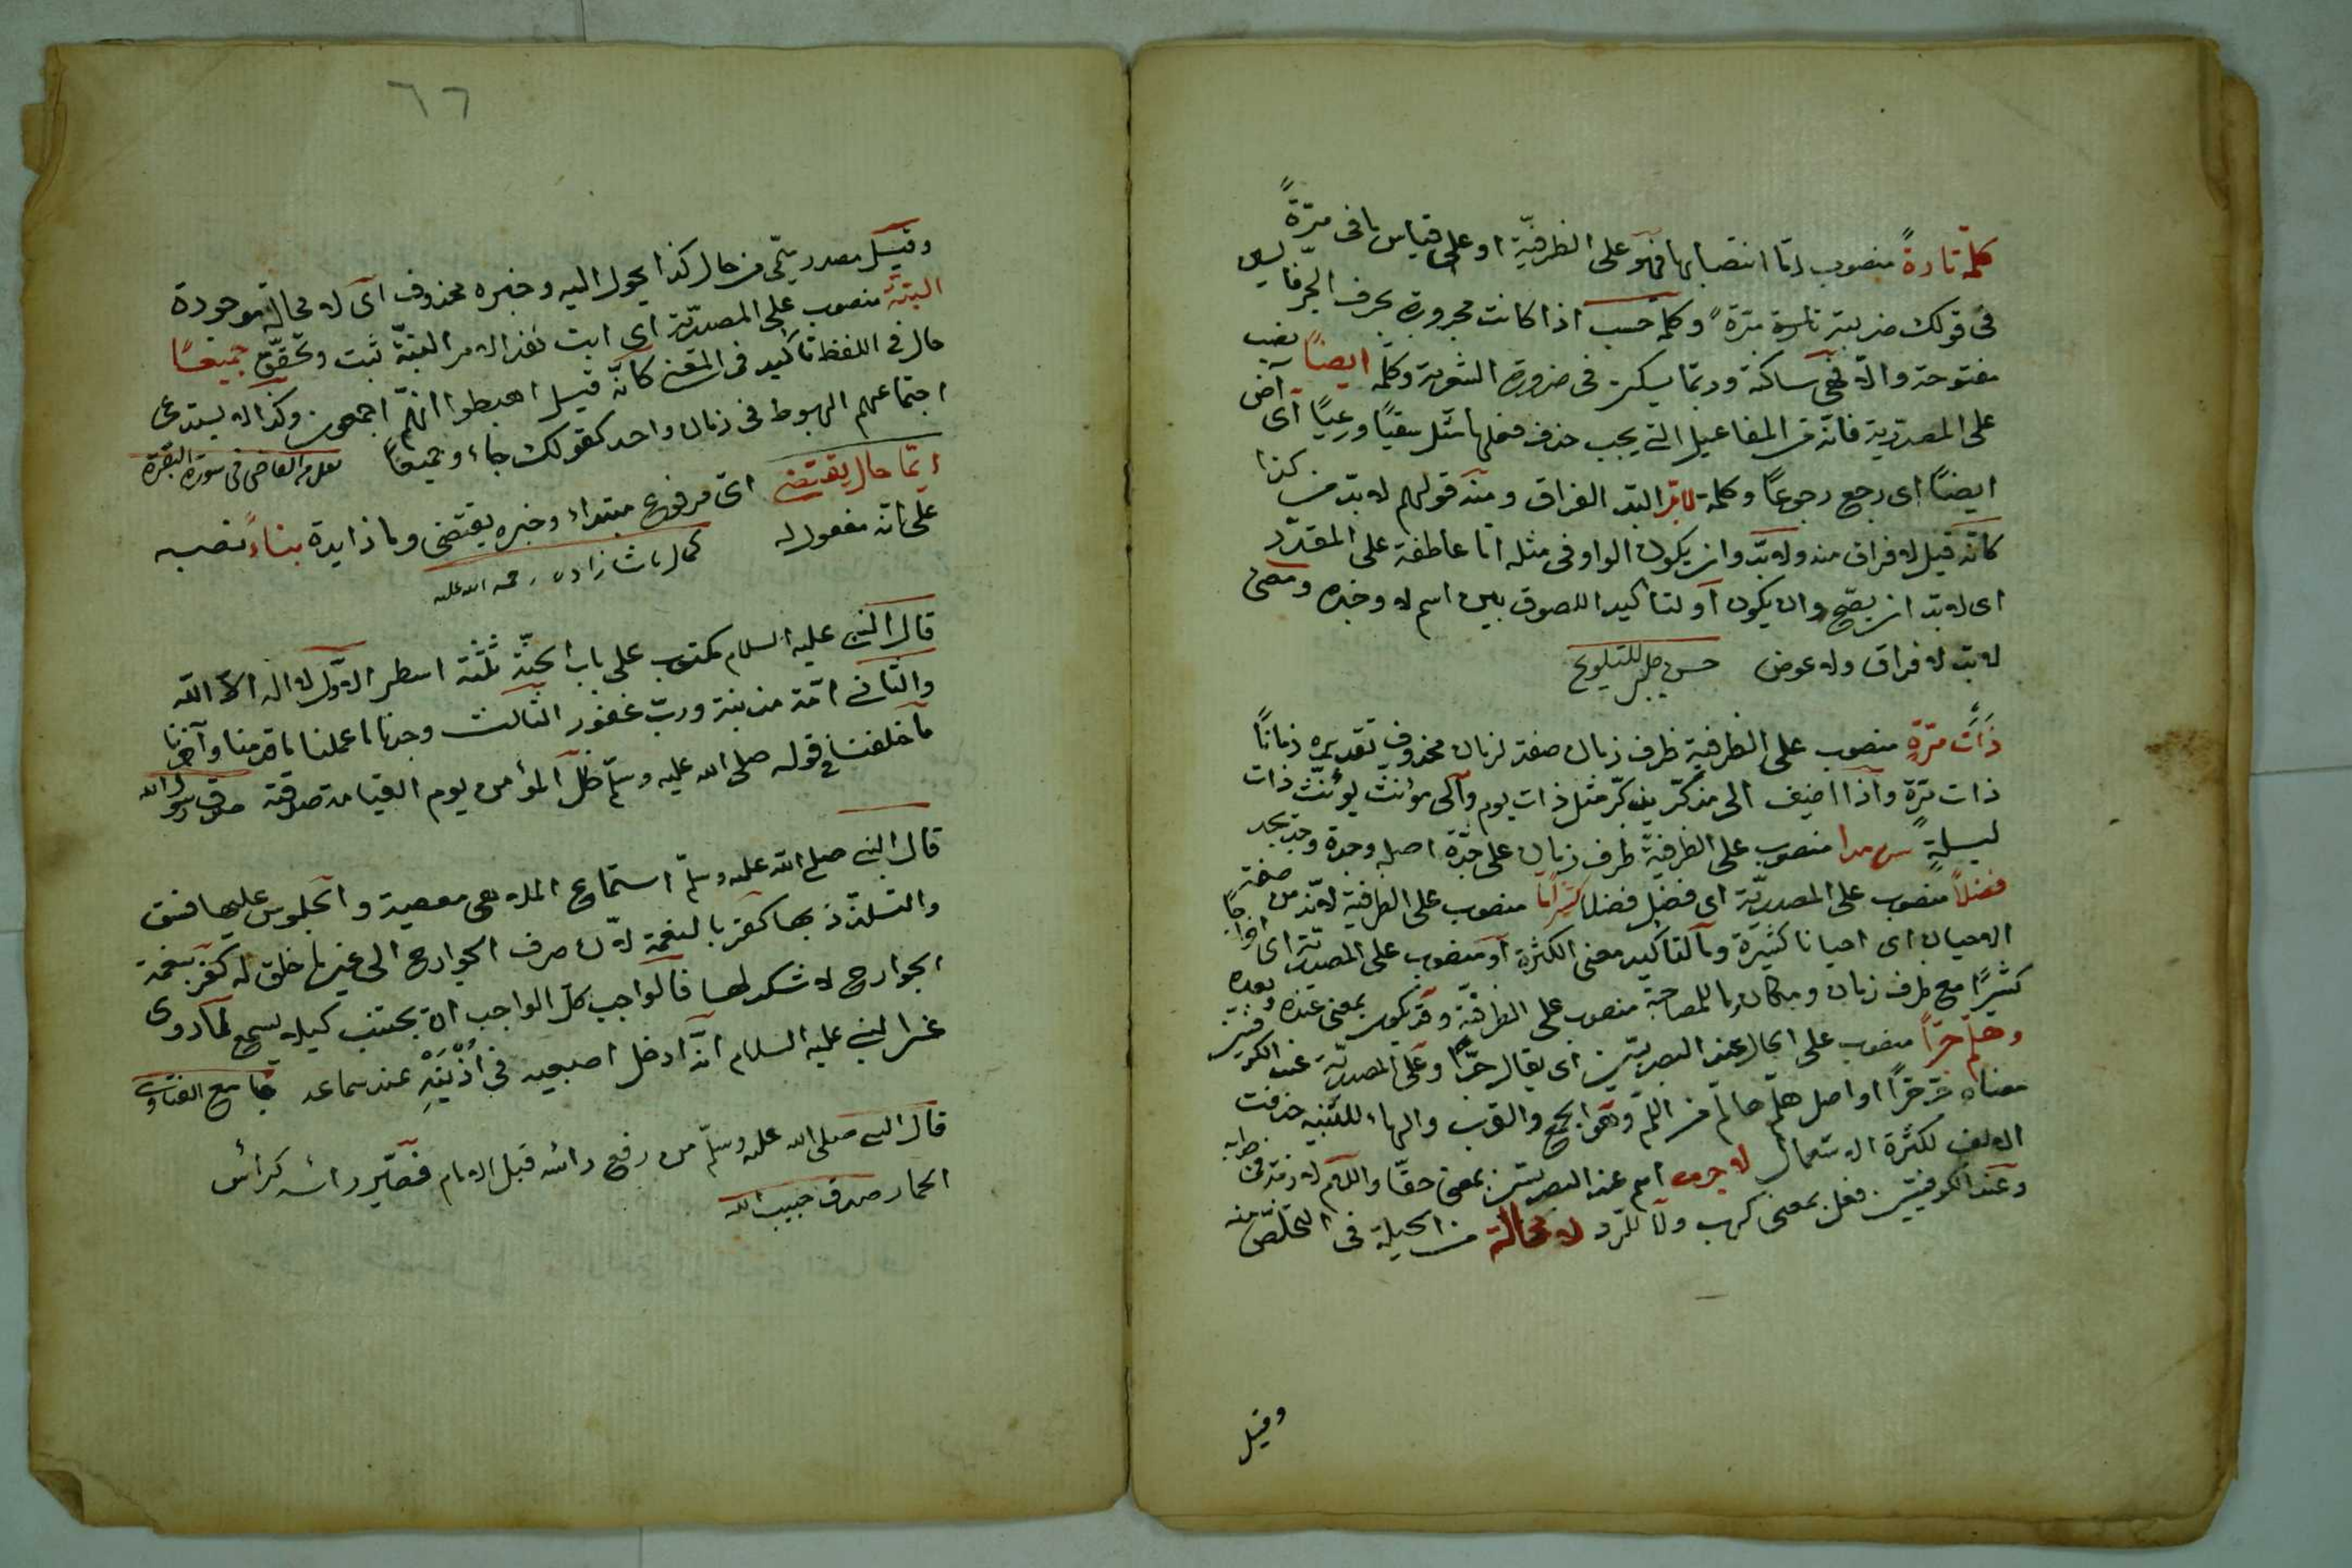 كلمة تارةً منصوب اما انتصابها فهو على الظرفية او على قياس ما فى مرّةً
فى قولك ضربته تارة مرّة وكلمة حسب اذا كانت مجرورة بحرف الجرّ فالسين
مفتوحة والّا فهى ساكنة وربّما يسكن فى ضرورة الشعرية وكلمة ايضاً نصب
على المصدرية فانّه من المفاعيل التى يجب حذف فعلها مثل سقيًا ورعيًا اى آض
ايضًا اى رجع رجوعًا وكلمة لابدّ البدّ الفراق ومنه قولهم لا بدّ من كذا
كانّه قيل لا فراق منه ولا بدّ وان يكون الواو فى مثله امّا عاطفة على المقدّر
اى لا بدّ ان يصحّ وان يكون او لتأكيد اللصوق بين اسم لا وخبره ومعنى
لا بدّ لا فراق ولا عوض حسن چلبى للتلويح
ذات مرّةٍ منصوب على الظرفية ظرف زمان صفة لزمان محذوف تقديره زمانًا
ذات مرّة واذا اضيف الى مذكّر يذكّر مثل ذات يوم والى مؤنث يؤنّث ذات
ليلةٍ منصوب على الظرفية ظرف زمان على جدة اصله وجدة وجد يجد
فضلاً منصوب على المصدريّة اى فضل فضلا كثيرًا ما منصوب على الظرفية لانّه من صفة
الاحيان اى احيانا كثيرة وما لتأكيد معنى الكثرة او منصوب على المصدريّة اى
كثيرًا مع ظرف زمان ومكان وما للمصاحبة منصوب على الظرفيّة وقد يكون بمعنى عنده وبعده
وهلمّ جرّاً منصوب على الحال عند البصريّين اى يقال جرّاً وعلى المصدريّة عند الكوفيّين
معناه جرّ جرّاً او اصل هلمّ هالمّ من اللمّ وهو الجمع والقرب والهاء للتنبيه حذفت
الالف لكثرة الاستعمال لا جرم اسم عند البصريّين بمعنى حقّاً واللام لازمة فى
وعند الكوفيّين فعل بمعنى كسب ولا للردّ لا محالة من الحيلة فى التخلّص منه
وقيل
٦٦
وقيل مصدر يمى من حال كذا يحول اليه وخبره محذوف اى لا محالة موجودة
البتّة منصوب على المصدريّة اى ابت نفذ الامر البتّة ثبت وتحقّق جميعًا
حال فى اللفظ تأكيد فى المعنى كانّه قيل اهبطوا انتم اجمعون ولذا لا يستدعى
اجتماعهم الهبوط فى زمان واحد كقولك جاءوا جميعًا نقل من القاضى فى سورة البقرة
ايّما حال يقتضى اى مرفوع مبتداء وخبره يقتضى وما زايدة بناءً نصبه
على انّه مفعول له كمال پاشا زاده رحمة الله عليه
قال النبى عليه السلام مكتوب على باب الجنّة ثلثة اسطر الاوّل لا اله الّا الله
والثانى امّة مذنبة وربّ غفور الثالث وجدنا ما عملنا ما قدّمنا وآخرنا
ما خلفنا فى قوله صلى الله عليه وسلّم ظلّ المؤمن يوم القيامة صدقته صدق رسول الله
قال النبى صلى الله عليه وسلّم استماع الملاهى معصية والجلوس عليها فسق
والتلذّذ بها كفر بالنعمة لانّ صرف الجوارح الى غير ما خلق له كفر بنعمة
الجوارح لا شكر لها فالواجب كلّ الواجب ان يجتنب كيلا يسمع لما روى
عن النبى عليه السلام انّه ادخل اصبعيه فى اُذُنَيْهِ عند سماعه جامع الفتاوى
قال النبى صلى الله عليه وسلّم من رفع رأسه قبل الامام فصيّر رأسه كرأس
الحمار صدق حبيب الله